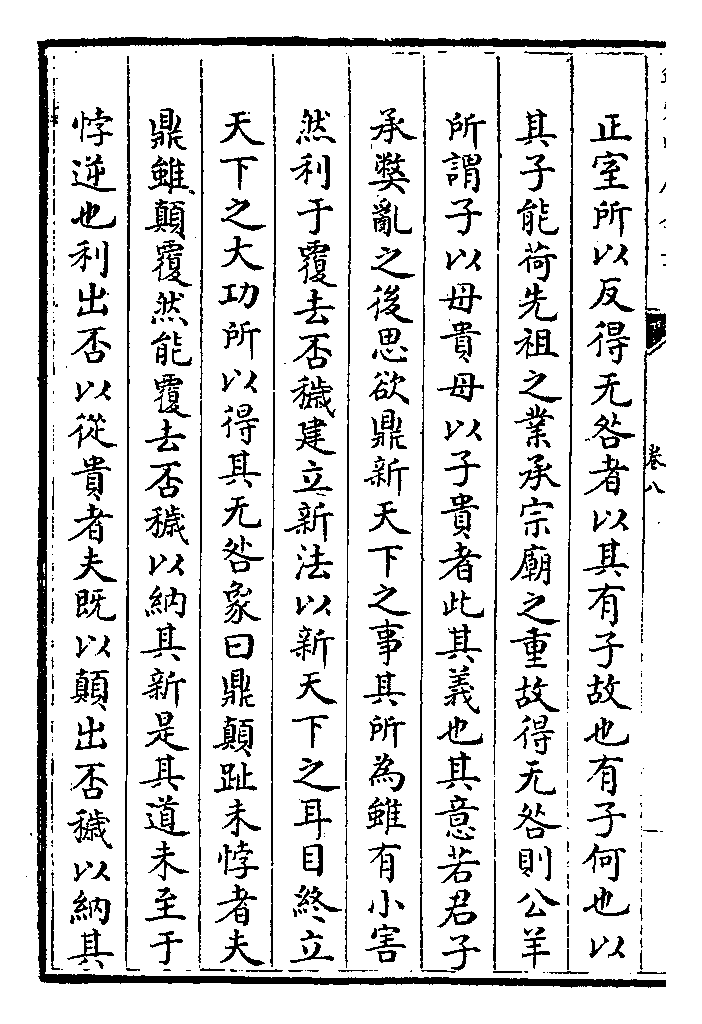 卷八
正室所以反得无咎者以其有子故也有子何也以
其子能荷先祖之業承宗廟之重故得无咎則公羊
所謂子以母貴母以子貴者此其義也其意若君子
承獘亂之後思欲鼎新天下之事其所為雖有小害
然利于覆去否穢建立新法以新天下之耳目終立
天下之大功所以得其无咎象曰鼎顛趾未悖者夫
鼎雖顛覆然能覆去否穢以納其新是其道未至于
悖逆也利出否以從貴者夫既以顛出否穢以納其